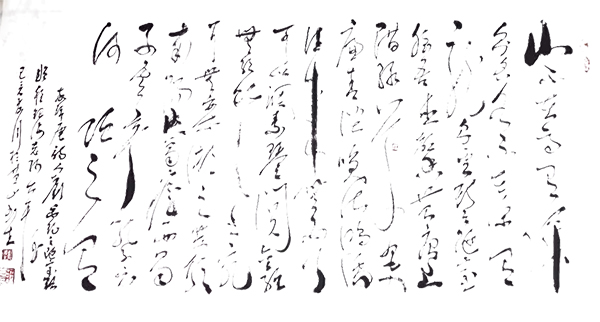 山不在高有仙
则名水不在深有
龙则灵斯是陋室惟
吾德馨苔痕上
阶绿草色入
帘青谈笑有鸿儒
往来无白丁
可以调素琴阅金经
无丝竹之乱耳
无案牍之劳形
南阳诸葛庐西蜀
子云亭孔子云
何陋之有
唐诗人刘禹锡之陋室铭
己丑年